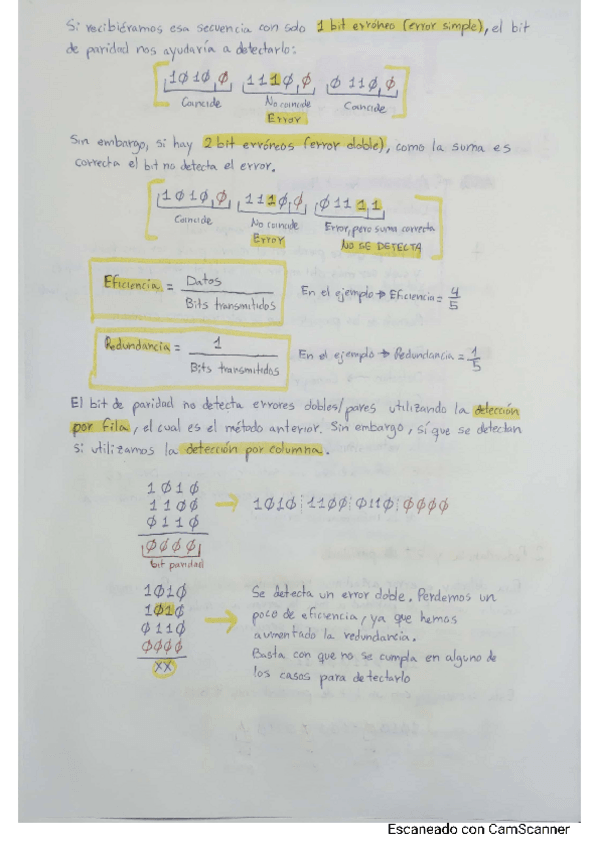 Si recibiéramos esa secuencia con solo 1 bit erróneo (error simple), el bit
de paridad nos ayudaría a detectarlo:
1010,0 1110,0 0110,0
Coincide No coincide Coincide
Error
Sin embargo, si hay 2 bit erróneos (error doble), como la suma es
correcta el bit no detecta el error.
1010,0 1110,0 01111
Coincide No coincide Error, pero suma correcta
Error NO SE DETECTA
Eficiencia = Datos / Bits transmitidos En el ejemplo → Eficiencia = 4/5
Redundancia = 1 / Bits transmitidos En el ejemplo → Redundancia = 1/5
El bit de paridad no detecta errores dobles/pares utilizando la detección
por fila, el cual es el método anterior. Sin embargo, sí que se detectan
si utilizamos la detección por columna.
1010
1100 → 1010 1100 0110 0000
0110
0000
bit paridad
1010 Se detecta un error doble. Perdemos un
1010 poco de eficiencia, ya que hemos
0110 → aumentado la redundancia.
0000 Basta con que no se cumpla en alguno de
XX los casos para detectarlo
Escaneado con CamScanner